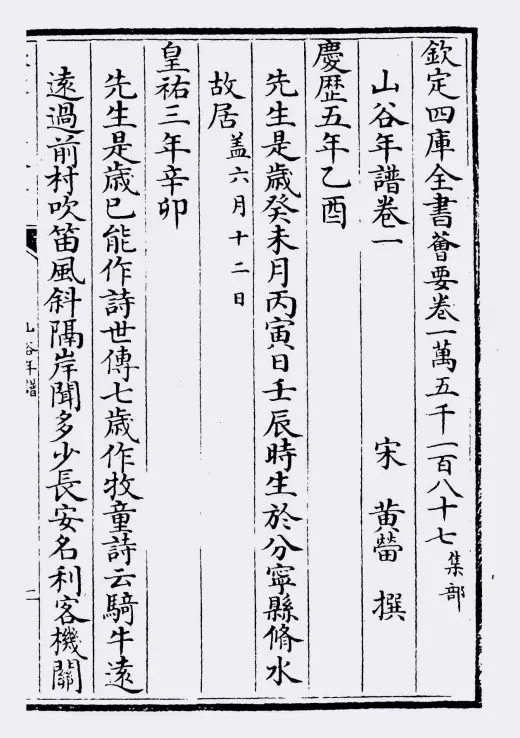 欽定四庫全書薈要卷一萬五千一百八十七集部
山谷年譜卷一
宋 黃㽦 撰
慶歷五年乙酉
先生是歲癸未月丙寅日壬辰時生於分寧縣脩水
故居盖六月十二日
皇祐三年辛卯
先生是歲已能作詩世傳七歲作牧童詩云騎牛遠
遠過前村吹笛風斜隔岸聞多少長安名利客機關
山谷年譜